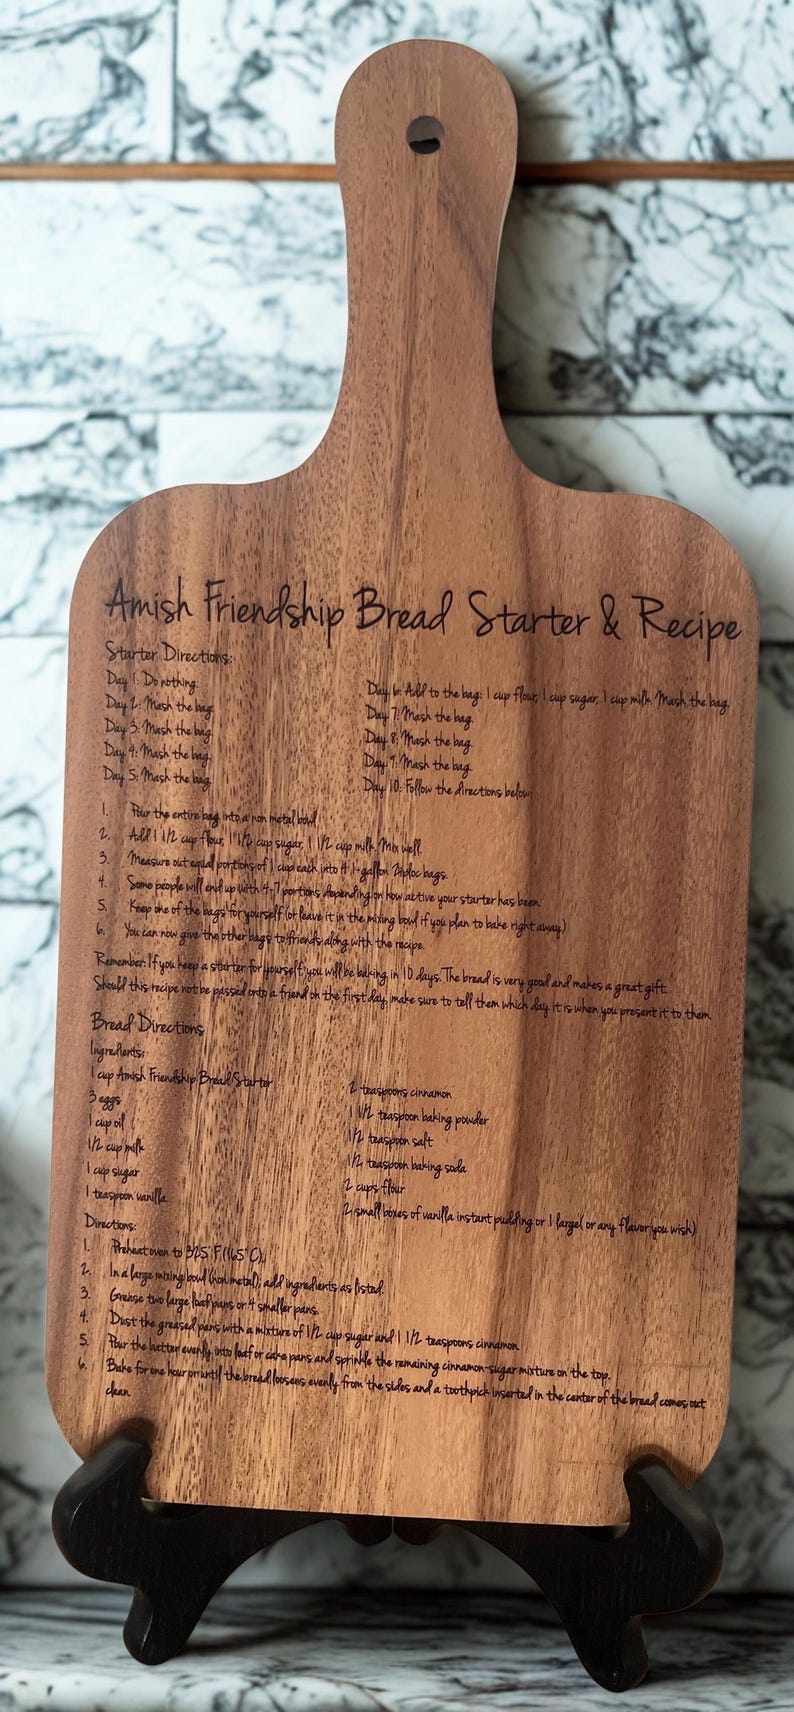 Amish Friendship Bread Starter & Recipe
Starter Directions:
Day 1: Do nothing.
Day 2: Mash the bag.
Day 3: Mash the bag.
Day 4: Mash the bag.
Day 5: Mash the bag.
Day 6: Add to the bag: 1 cup flour, 1 cup sugar, 1 cup milk. Mash the bag.
Day 7: Mash the bag.
Day 8: Mash the bag.
Day 9: Mash the bag.
Day 10: Follow the directions below:
1. Pour the entire bag into a non metal bowl.
2. Add 1 1/2 cup flour, 1 1/2 cup sugar, 1 1/2 cup milk. Mix well.
3. Measure out equal portions of 1 cup each into 4 1-gallon Ziploc bags.
4. Some people will end up with 4-7 portions depending on how active your starter has been.
5. Keep one of the bags for yourself (or leave it in the mixing bowl if you plan to bake right away)
6. You can now give the other bags to friends along with the recipe.
Remember: If you keep a starter for yourself, you will be baking in 10 days. The bread is very good and makes a great gift.
Should this recipe not be passed onto a friend on the first day, make sure to tell them which day it is when you present it to them.
Bread Directions
Ingredients:
1 cup Amish Friendship Bread Starter
3 eggs
1 cup oil
1/2 cup milk
1 cup sugar
1 teaspoon vanilla
2 teaspoons cinnamon
1 1/2 teaspoon baking powder
1/2 teaspoon salt
1/2 teaspoon baking soda
2 cups flour
2 small boxes of vanilla instant pudding or 1 large( or any flavor you wish)
Directions:
1. Preheat oven to 325° F (165° C).
2. In a large mixing bowl (non metal), add ingredients as listed.
3. Grease two large loaf pans or 4 smaller pans.
4. Dust the greased pans with a mixture of 1/2 cup sugar and 1 1/2 teaspoons cinnamon.
5. Pour the batter evenly into loaf or cake pans and sprinkle the remaining cinnamon-sugar mixture on the top.
6. Bake for one hour or until the bread loosens evenly from the sides and a toothpick inserted in the center of the bread comes out
clean.